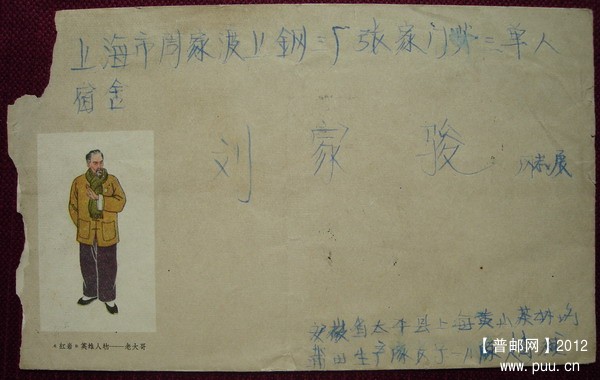 上海市周家渡上钢三厂张家门弄三单人
宿舍
刘家骏
《红岩》英雄人物——老大哥
安徽省太平县上海黄山茶林场
生产队
【普邮网】2012
www.puu.cn